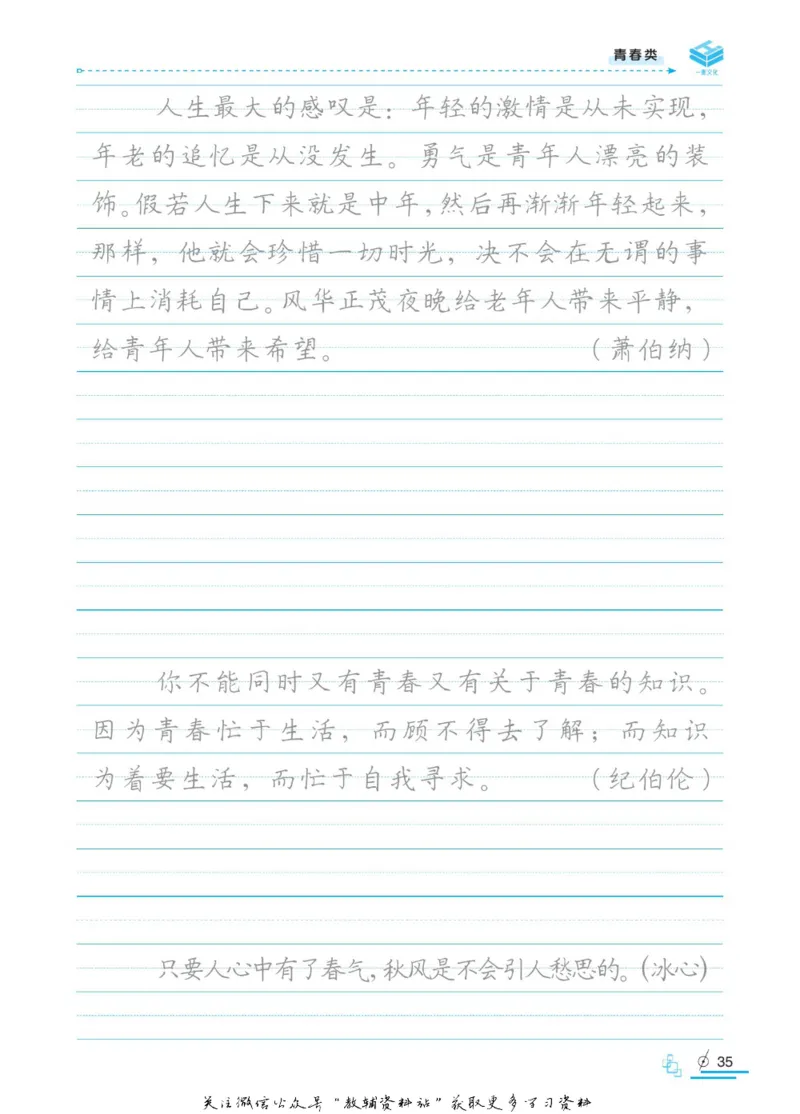 青春类
一本文化
人生最大的感叹是：年轻的激情是从未实现，
年老的追忆是从没发生。勇气是青年人漂亮的装
饰。假若人生下来就是中年，然后再渐渐年轻起来，
那样，他就会珍惜一切时光，决不会在无谓的事
情上消耗自己。风华正茂夜晚给老年人带来平静，
给青年人带来希望。（萧伯纳）
你不能同时又有青春又有关于青春的知识。
因为青春忙于生活，而顾不得去了解；而知识
为着要生活，而忙于自我寻求。（纪伯伦）
只要人心中有了春气，秋风是不会引人愁思的。（冰心）
35
关注微信公众号“教辅资料站”获取更多学习资料